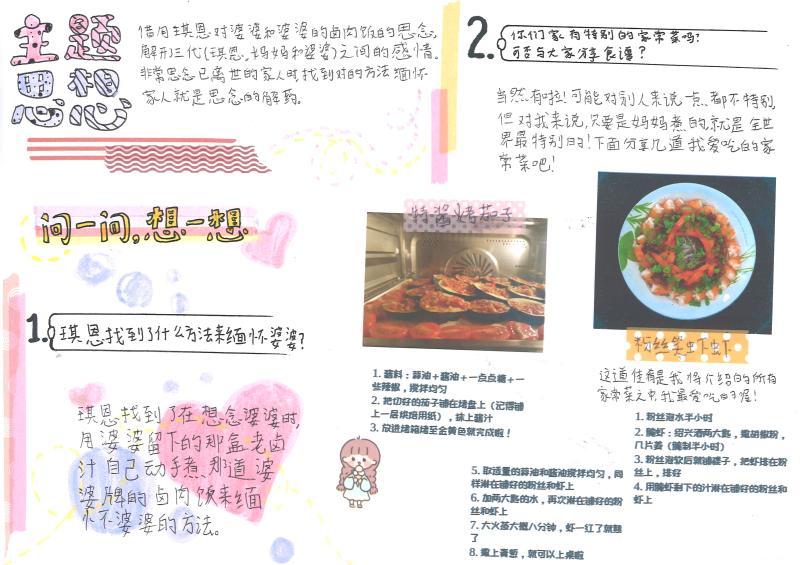 主题
思想
借用琪恩对婆婆和婆婆的卤肉饭的思念,
解开三代(琪恩,妈妈和婆婆)之间的感情。
非常思念已离世的家人时,找到对的方法缅怀
家人就是思念的解药。
问一问,想一想
1.
琪恩找到了什么方法来缅怀婆婆?
琪恩找到了在想念婆婆时,
用婆婆留下的那盒老卤
汁自己动手煮那道婆
婆牌的卤肉饭来缅
怀婆婆的方法。
2.
你们家有特别的家常菜吗?
可否与大家分享食谱?
当然有啦!可能对别人来说一点都不特别,
但对我来说,只要是妈妈煮的,就是全世
界最特别的!下面分享几道我爱吃的家
常菜吧!
特酱烤茄子
1. 酱料:蒜油+酱油+一点点糖+一
些辣椒,搅拌均匀
2. 把切好的茄子铺在烤盘上(记得铺
上一层烘焙用纸),抹上酱汁
3. 放进烤箱烤至金黄色就完成啦!
粉丝笑虾虾
这道佳肴是我将介绍的所有
家常菜之中,我最爱吃的喔!
1. 粉丝泡水半小时
2. 腌虾:绍兴酒两大匙,撒胡椒粉,
几片姜(腌制半小时)
3. 粉丝泡软后就铺碟子,把虾排在粉
丝上,排好
4. 用腌虾剩下的汁淋在铺好的粉丝和
虾上
5. 取适量的蒜油和酱油搅拌均匀,同
样淋在铺好的粉丝和虾上
6. 加两大匙的水,再次淋在铺好的粉
丝和虾上
7. 大火蒸大概八分钟,虾一红了就熟
了
8. 撒上青葱,就可以上桌啦